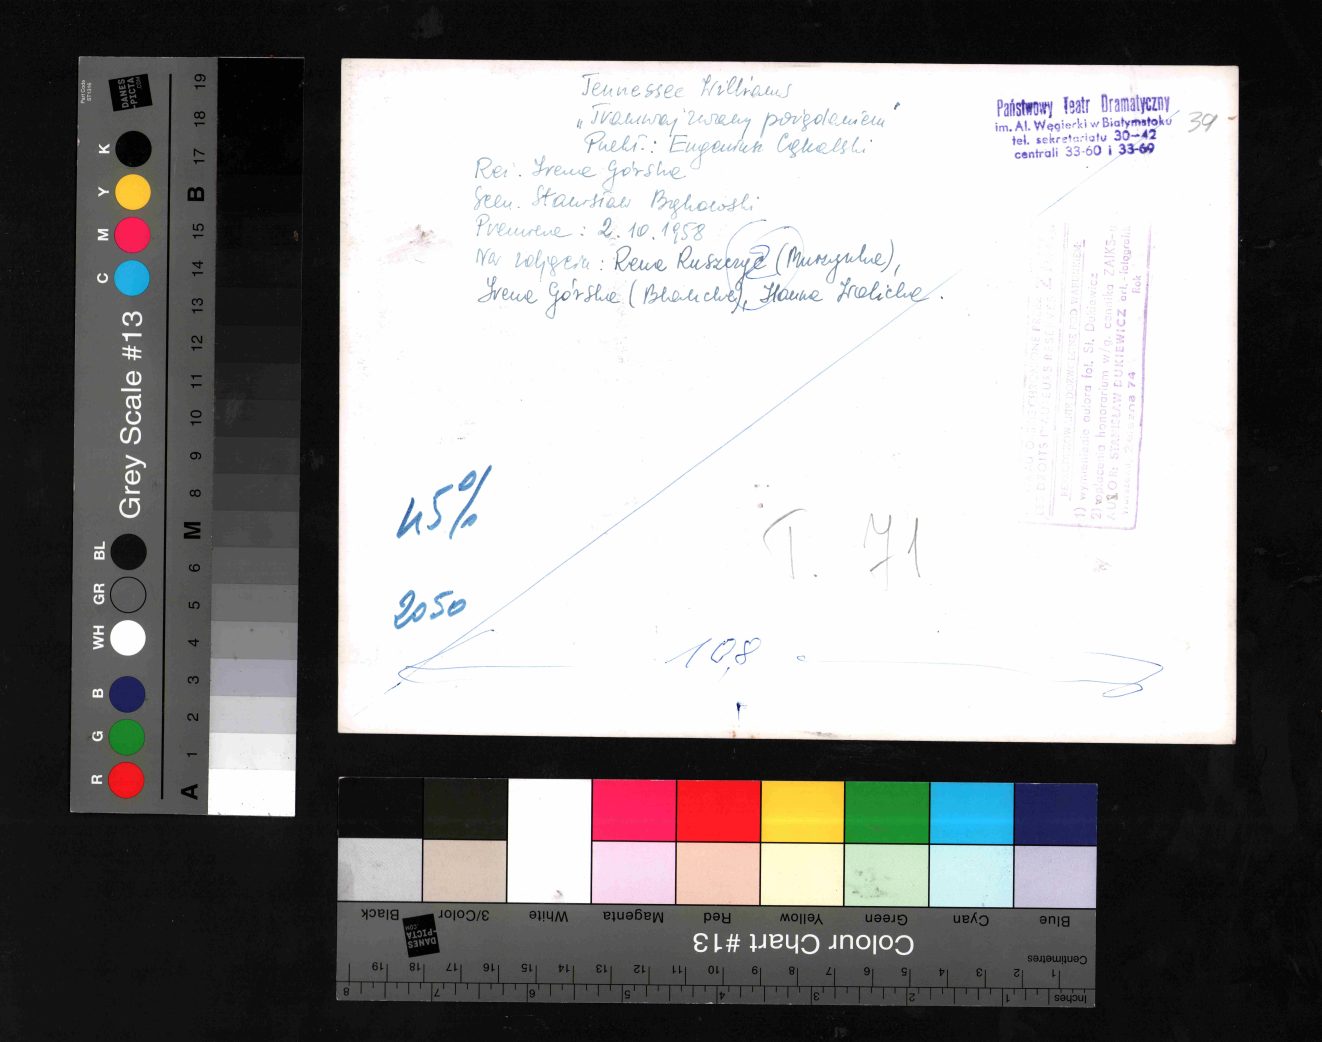 Tennessee Williams
"Tramwaj zwany pożądaniem"
Przekł.: Eugeniusz Cękalski
Reż. Irena Górska
Scen. Stanisław Bąkowski
Premiera: 2.10.1958
Na zdjęciu: Rena Ruszczyc (Murzynka),
Irena Górska (Blanche), Hanna
Państwowy Teatr Dramatyczny
im. Al. Węgierki w Białymstoku
tel. sekretariatu 30-42
centrali 33-60 i 33-69
39
1) wymieniania autora fot. St.
2) płacenia honorarium w/g. cennika ZAIKS-u
AUTOR: STANISŁAW art.-fotografik
74 Rok
45%
2050
T. 71
10,8
DANES
-PICTA
.COM
Grey Scale #13
R G B WH GR BL C M Y K
A 1 2 3 4 5 6 M 8 9 10 11 12 13 14 15 B 17 18 19
Black 3/Color White Magenta Red Yellow Green Cyan Blue
DANES
-PICTA
.COM
Colour Chart #13
Centimetres
1 2 3 4 5 6 7 8 9 10 11 12 13 14 15 16 17 18 19
Inches
1 2 3 4 5 6 7 8